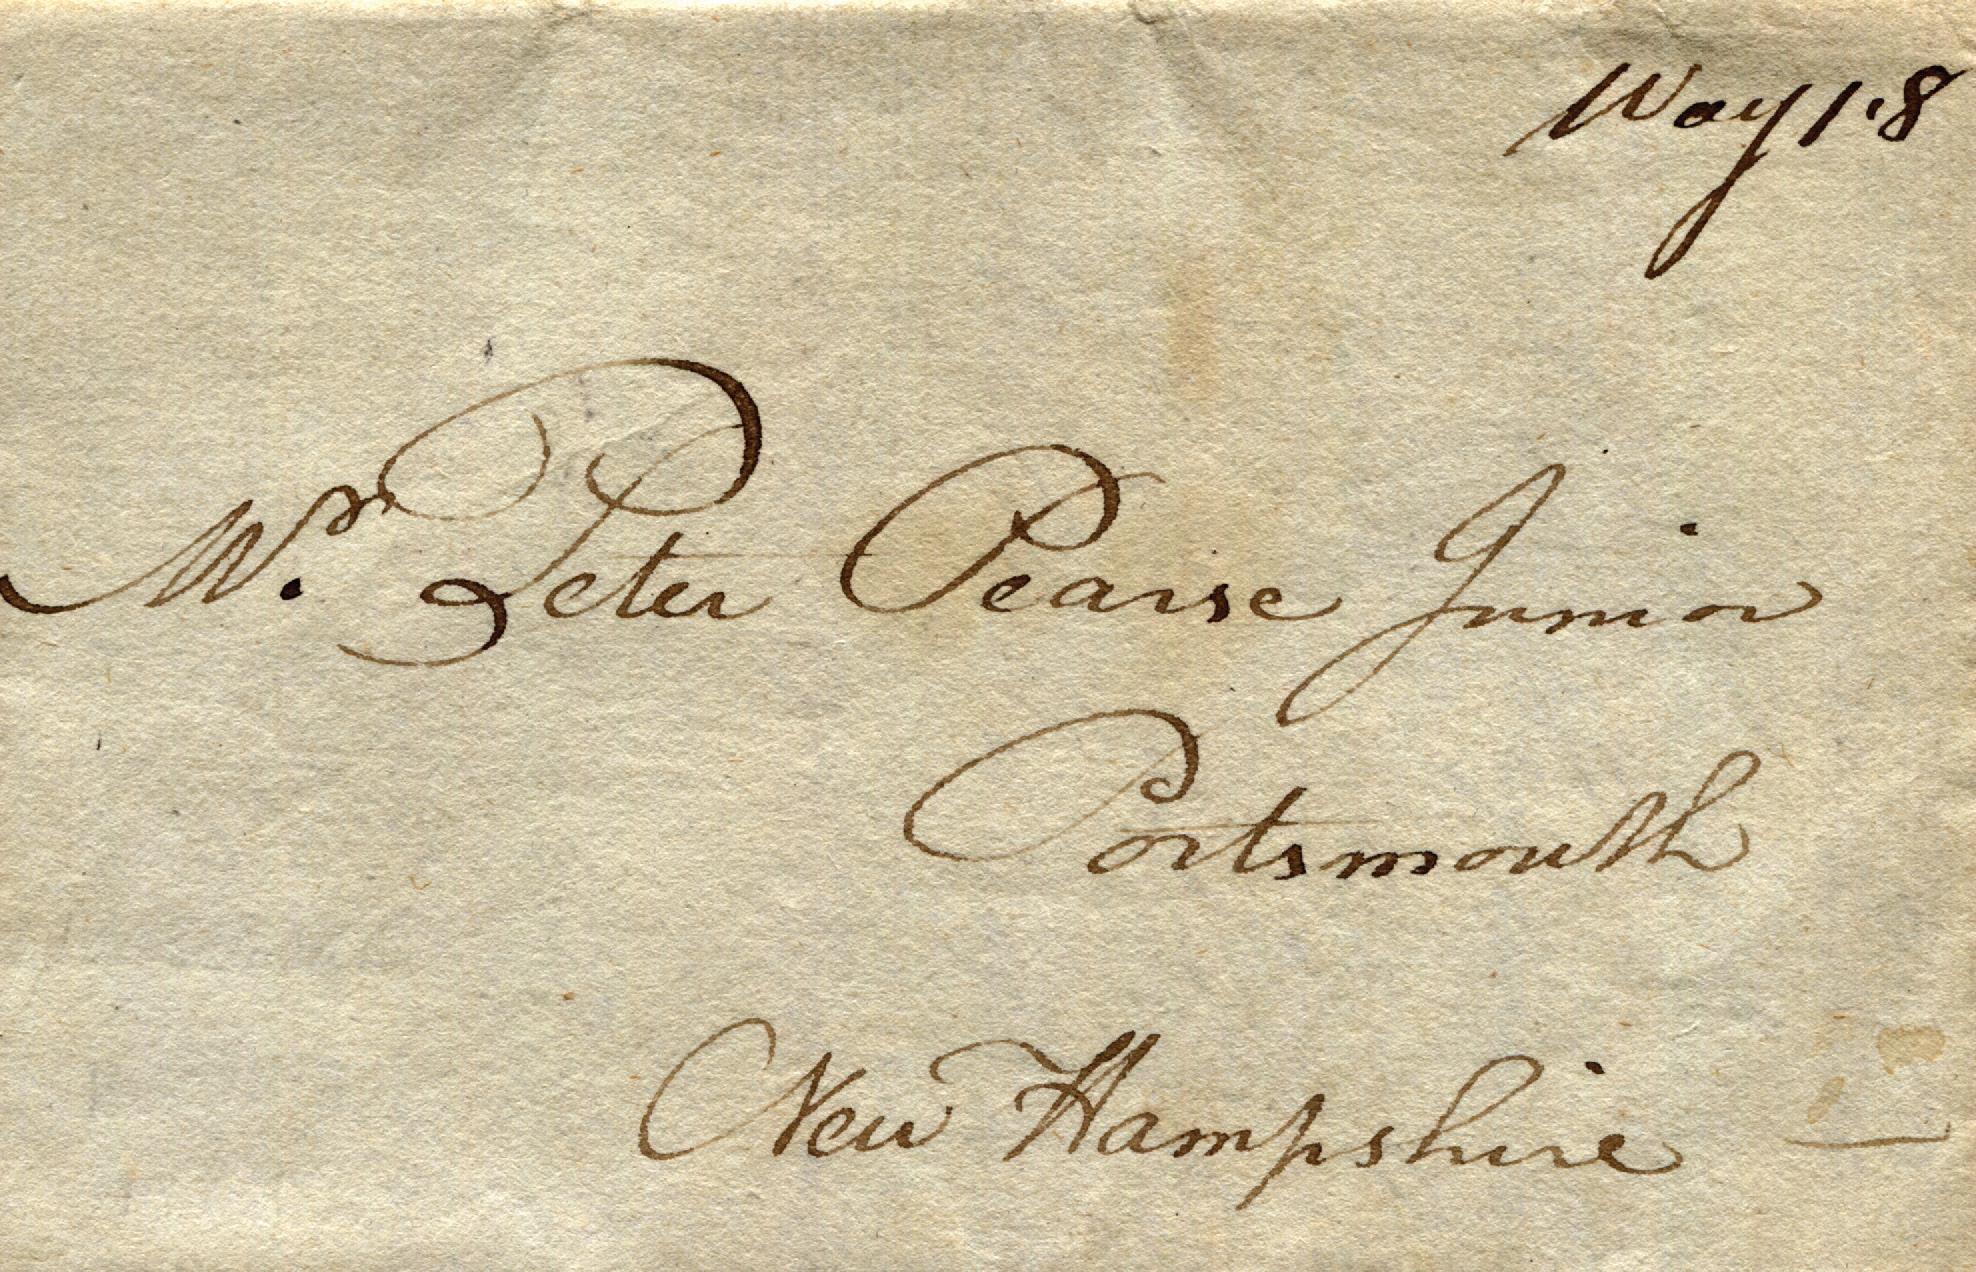 Way 1.8
Mr. Peter Pearse Junior
Portsmouth
New Hampshire